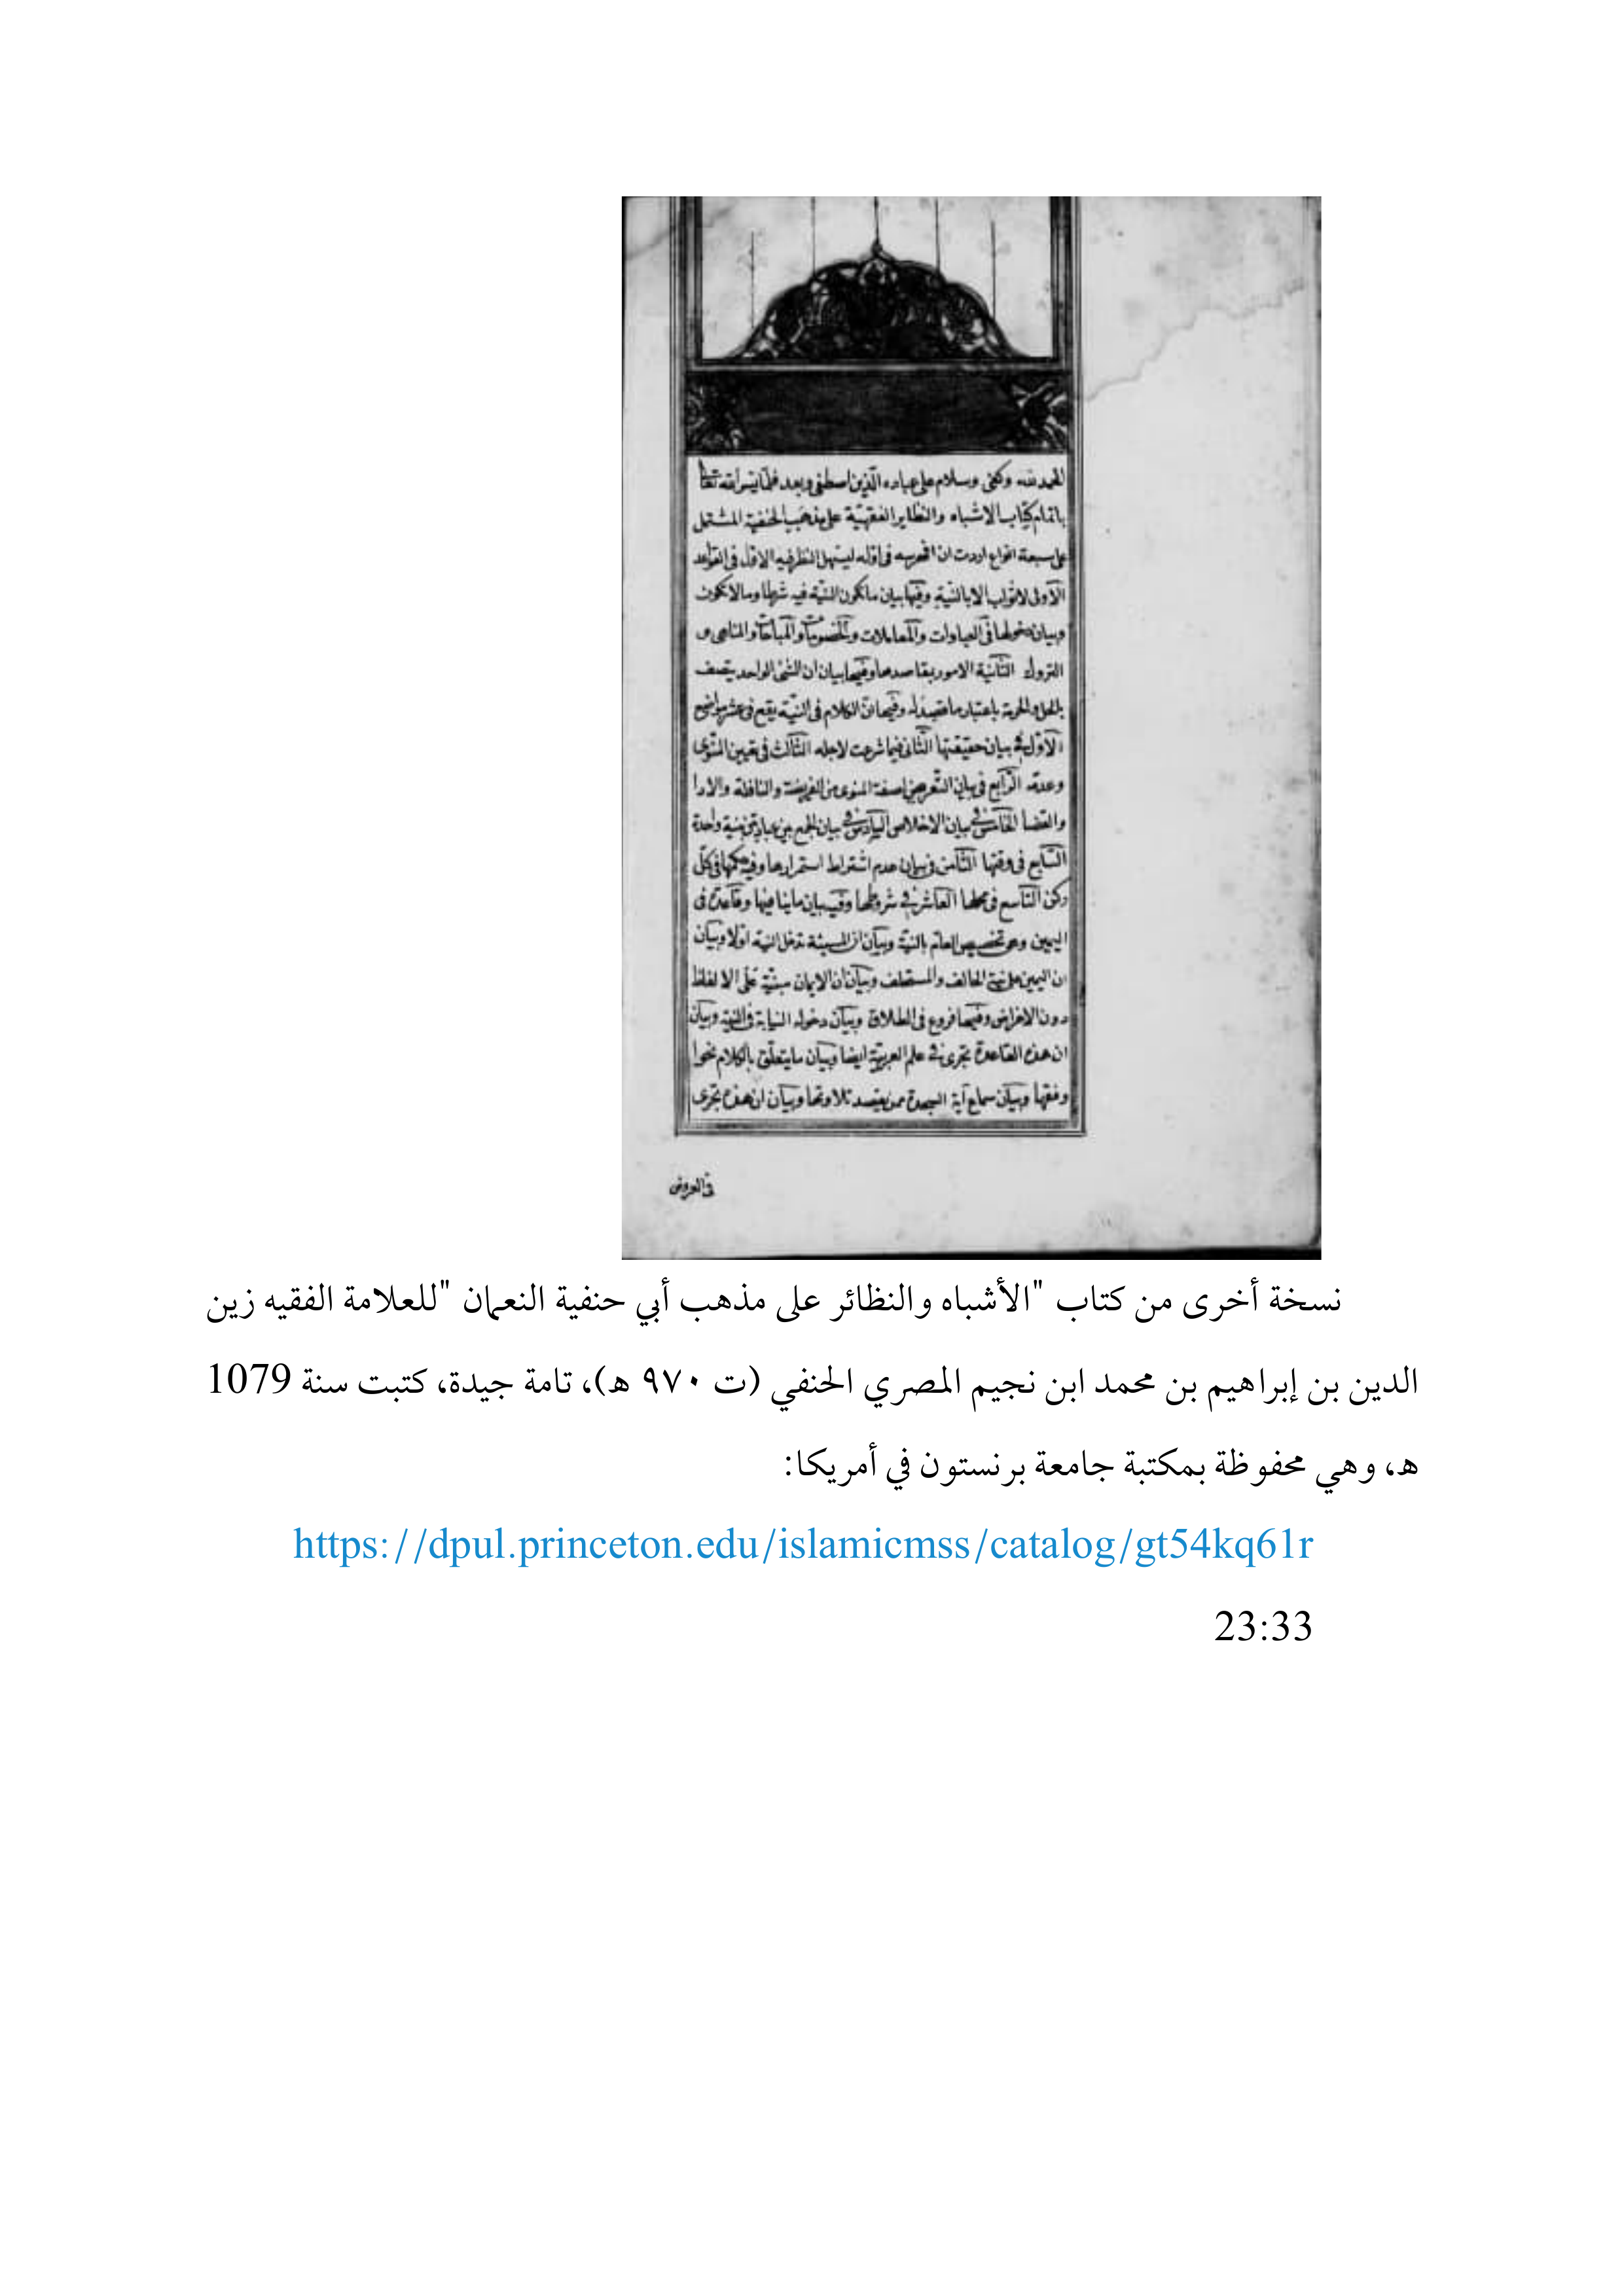 الحمد لله وكفى وسلام على عباده الّذين اصطفى وبعد فلمّا يسر الله تعالى
باتمام كتاب الاشباه والنظاير الفقهيّة على مذهب الحنفية المشتمل
على سبعة انواع اردت ان افهرسه فى اوّله ليسهل النظر فيه الاول فى القواعد
الاولى لا ثواب الا بالنيّة وفيها بيان ما تكون النيّة فيه شرطا وما لا تكون
وبيان دخولها فى العبادات والمعاملات والخصومات والمباحات والمناهى و
التروك الثانية الامور بمقاصدها وفيها بيان ان الشئ الواحد يتصف
بالحل والحرمة باعتبار ما قصد له وفيها ان الكلام فى النيّة يقع فى عشر مواضع
الاوّل فى بيان حقيقتها الثانى فيما شرعت لاجله الثالث فى تعيين المنوى
وعدمه الرابع فى بيان التعرض لصفة المنوى من الفريضة والنافلة والادا
والقضا الخامس فى بيان الاخلاص السادس فى بيان الجمع بين عبادتين بنية واحدة
السابع فى وقتها الثامن فى بيان عدم اشتراط استمرارها وفيه حكمها فى كلّ
ركن التاسع فى محلها العاشر فى شروطها وفيه بيان ما ينافيها وقاعدة فى
اليمين وهى تخصيص العام بالنيّة وبيان ان المشيئة تدخل النية اولا وبيان
ان اليمين على نية الحالف والمستحلف وبيان ان الايمان مبنيّة على الالفاظ
دون الاغراض وفيها فروع فى الطلاق وبيان دخول النيابة فى النية وبيان
ان هذه القاعدة تجرى فى علم العربيّة ايضا وبيان ما يتعلّق بالكلام نحوا
وفقها وبيان سماع آية السجدة ممن يقصد تلاوتها وبيان ان هذه تجرى
فى العروض
نسخة أخرى من كتاب "الأشباه والنظائر على مذهب أبي حنفية النعمان "للعلامة الفقيه زين
الدين بن إبراهيم بن محمد ابن نجيم المصري الحنفي (ت ٩٧٠ هـ)، تامة جيدة، كتبت سنة 1079
هـ، وهي محفوظة بمكتبة جامعة برنستون في أمريكا:
https://dpul.princeton.edu/islamicmss/catalog/gt54kq61r
23:33